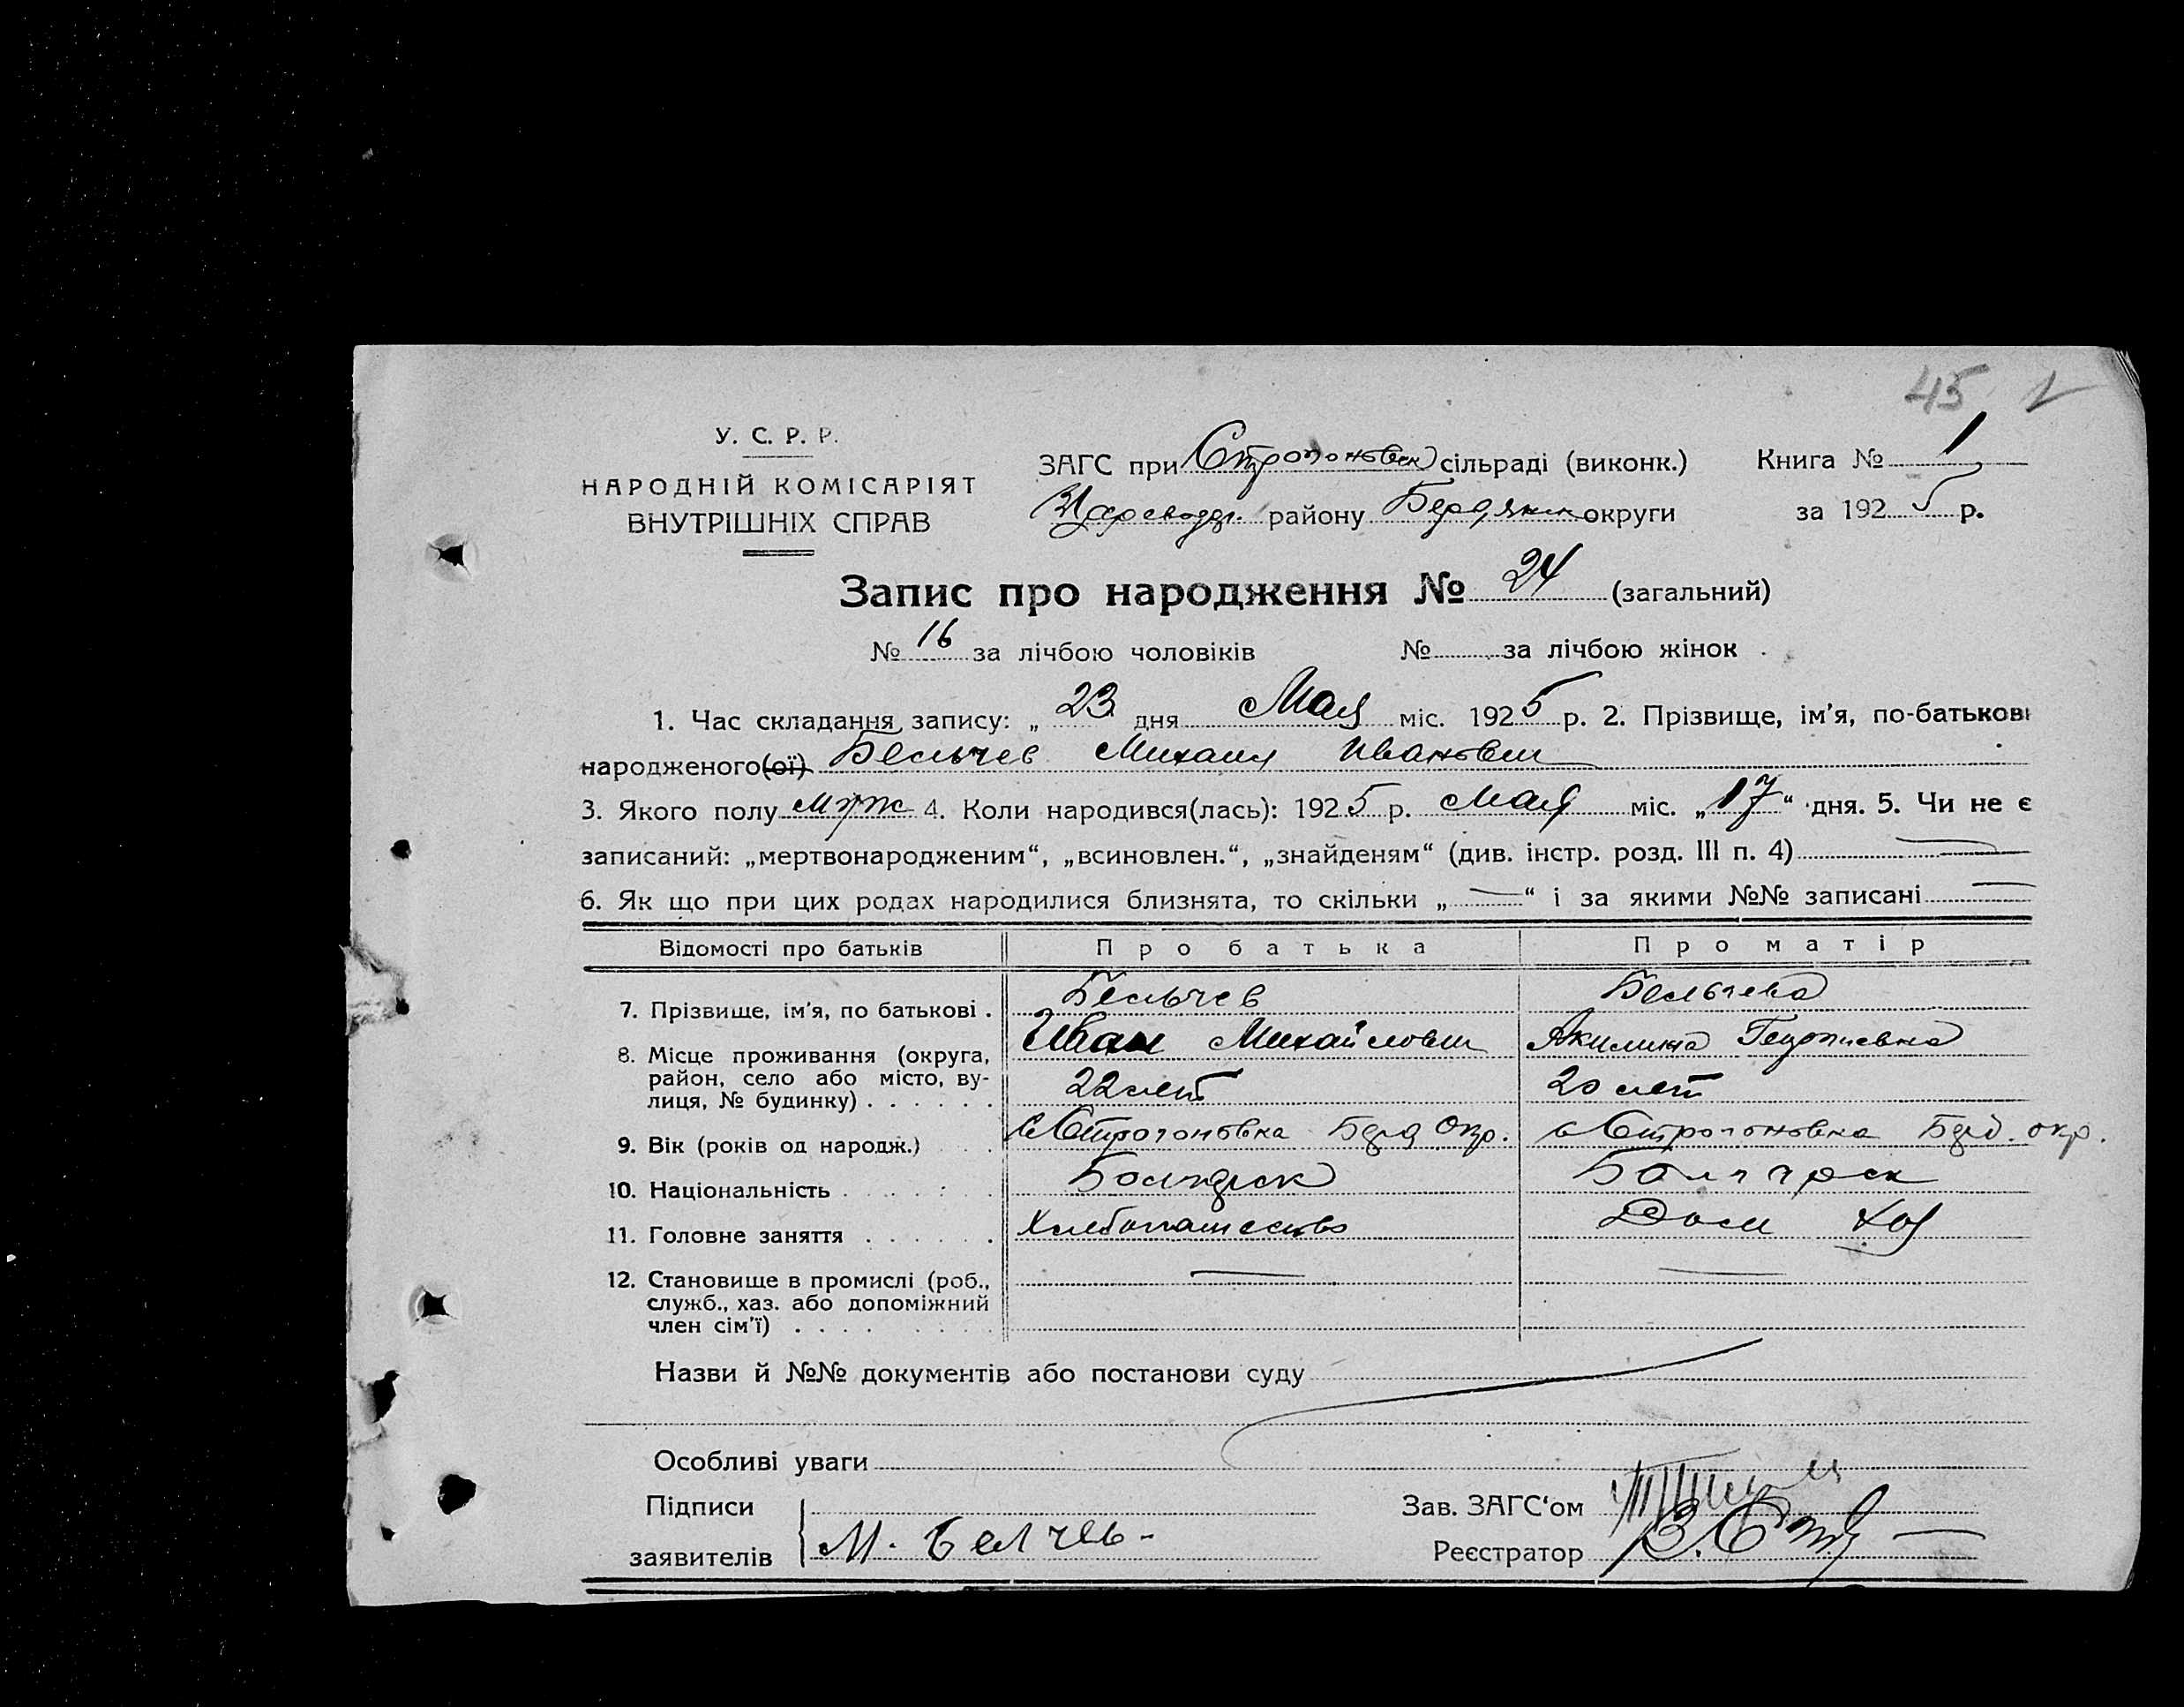 45
У. С. Р. Р.
НАРОДНІЙ КОМІСАРІЯТ
ВНУТРІШНІХ СПРАВ
ЗАГС при Строгоновск сільраді (виконк.) Книга № 1
району Бердянск округи за 1925 р.
Запис про народження № 24 (загальний)
№ 16 за лічбою чоловіків № за лічбою жінок
1. Час складання запису: „ 23 дня Мая міс. 1925 р. 2. Прізвище, ім'я, по-батькові
народженого(ої) Бельчев Михаил Иванович
3. Якого полу муж 4. Коли народився(лась): 1925 р. Мая міс. „17“ дня. 5. Чи не є
записаний: „мертвонародженим“, „всиновлен.“, „знайденям“ (див. інстр. розд. III п. 4)
6. Як що при цих родах народилися близнята, то скільки „ — “ і за якими №№ записані —
Відомості про батьків Про батька Про матір
7. Прізвище, ім'я, по батькові . Бельчев Бельчева
Иван Михайлович Акилина Георгиевна
8. Місце проживання (округа,
район, село або місто, ву-
лиця, № будинку) . . . . . . 22 лет 20 лет
9. Вік (років од народж.) . . с Строгоновка Берд Окр. с Строгоновка Берд. окр.
10. Національність . . . . . . Болгарск Болгарск
11. Головне заняття . . . . . . Хлебопашество Дом Хоз
12. Становище в промислі (роб.,
служб., хаз. або допоміжний
член сім'ї) . . . . . . . .
Назви й №№ документів або постанови суду
Особливі уваги
Підписи
заявителів М. Белчев
Зав. ЗАГС‘ом
Реєстратор